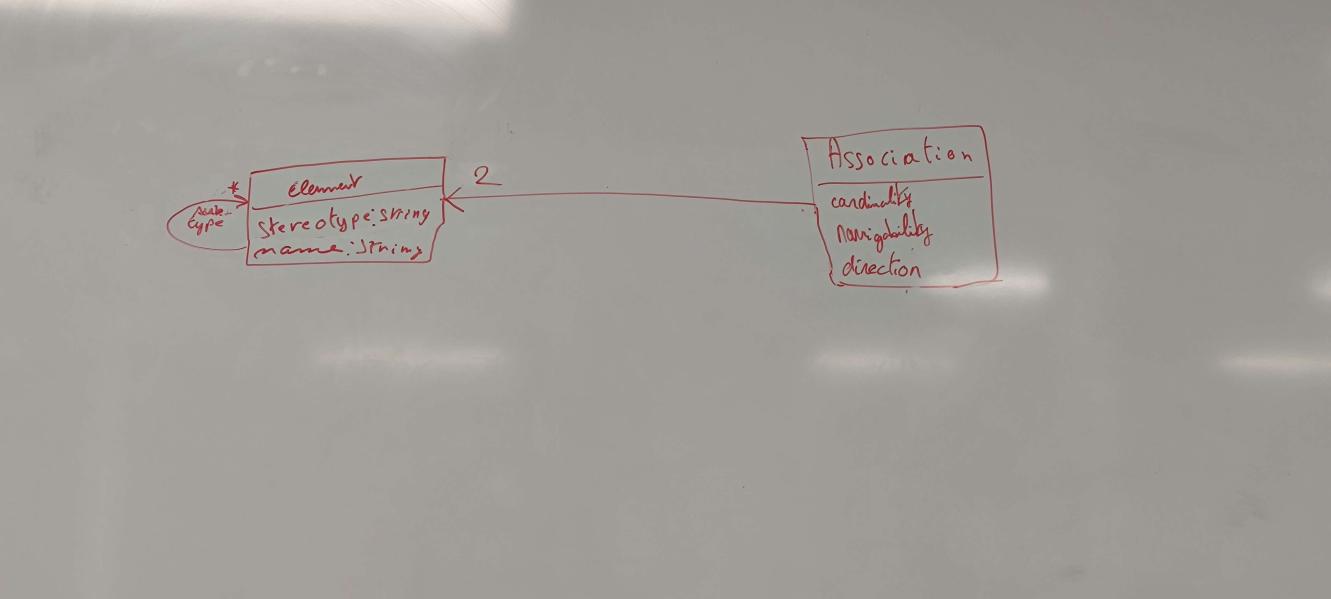 *
element
type
stereotype:string
name:String
2
Association
cardinality
navigability
direction